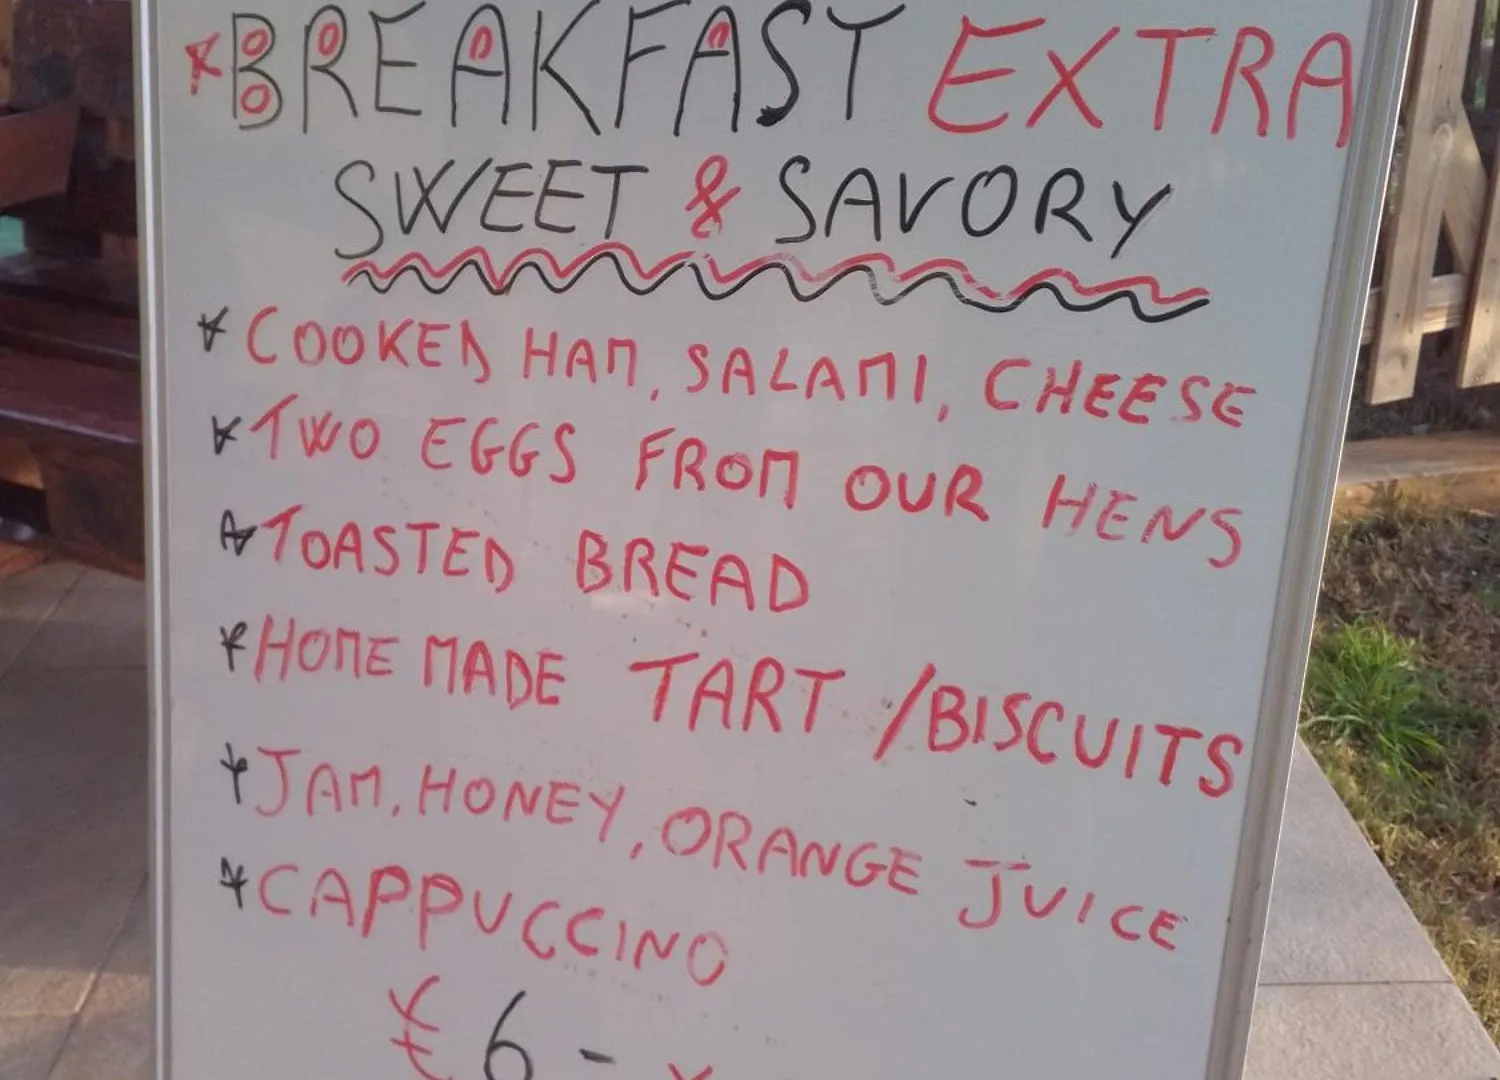 *BREAKFAST EXTRA
SWEET & SAVORY
*COOKED HAM, SALAMI, CHEESE
*TWO EGGS FROM OUR HENS
*TOASTED BREAD
*HOME MADE TART /BISCUITS
*JAM, HONEY, ORANGE JUICE
*CAPPUCCINO
€ 6 -